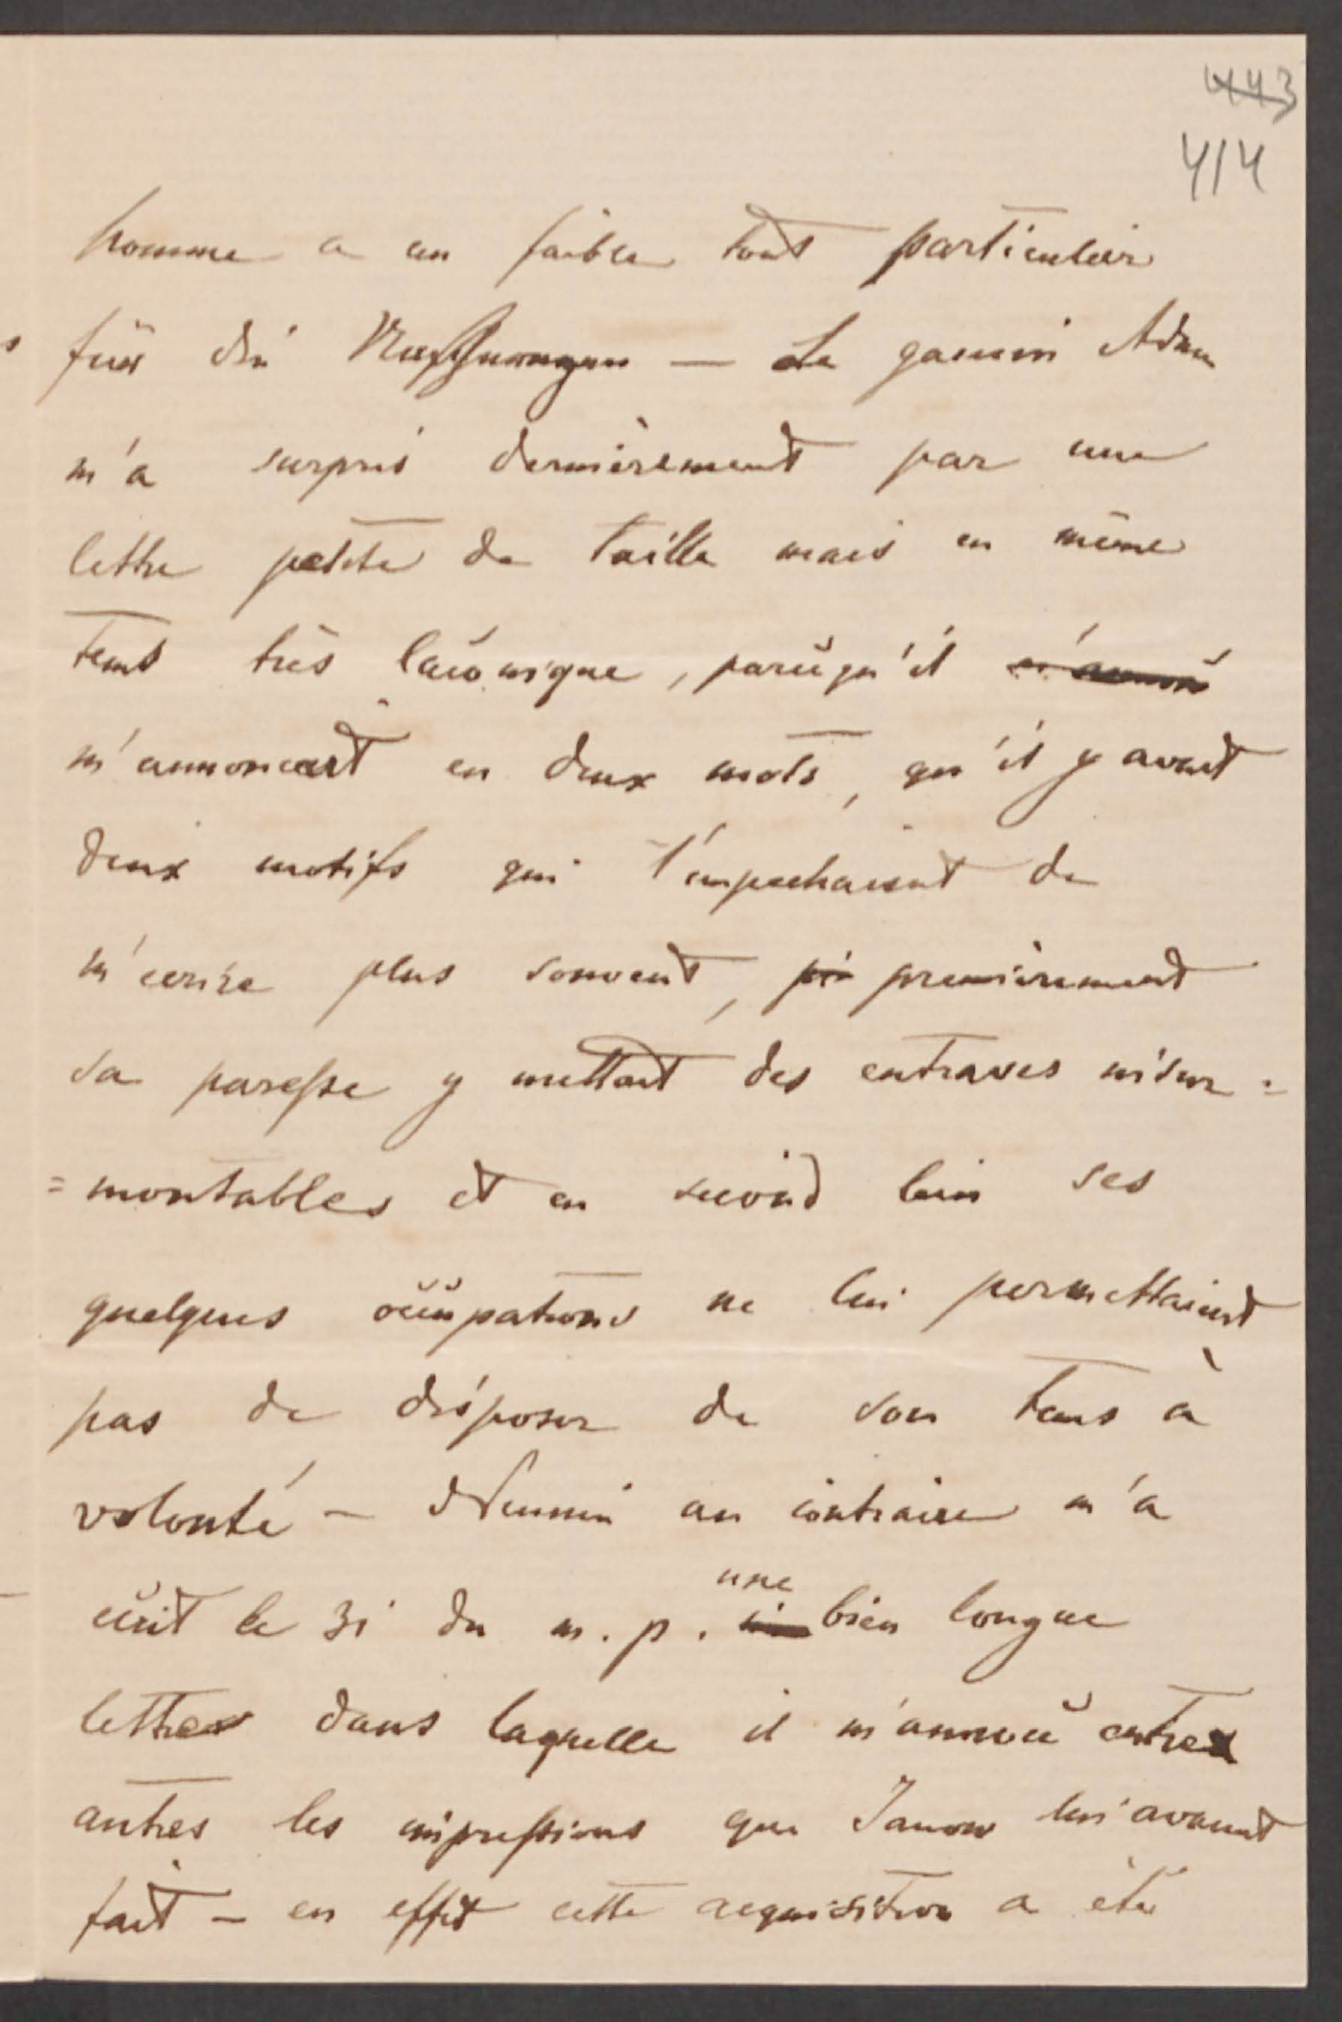 443
414
homme a un faible tout particulier
für die — Le gamin Adam
m'a surpris dernièrement par une
lettre petite de taille mais en même
tems très laconique, parcequ'il
m'annoncait en deux mots, qu'il y avait
deux motifs qui l'empechaient de
m'ecrire plus souvent, premièrement
sa paresse y mettait des entraves insur=
=montables et en second lieu ses
quelques occupations ne lui permettaient
pas de disposer de son tems à
volonté — au contraire m'a
écrit le 31 du m. p. une bien longue
lettre dans laquelle il m'annoncé entre
autres les impressions que Janow lui avaient
fait — en effet cette acquisition a été